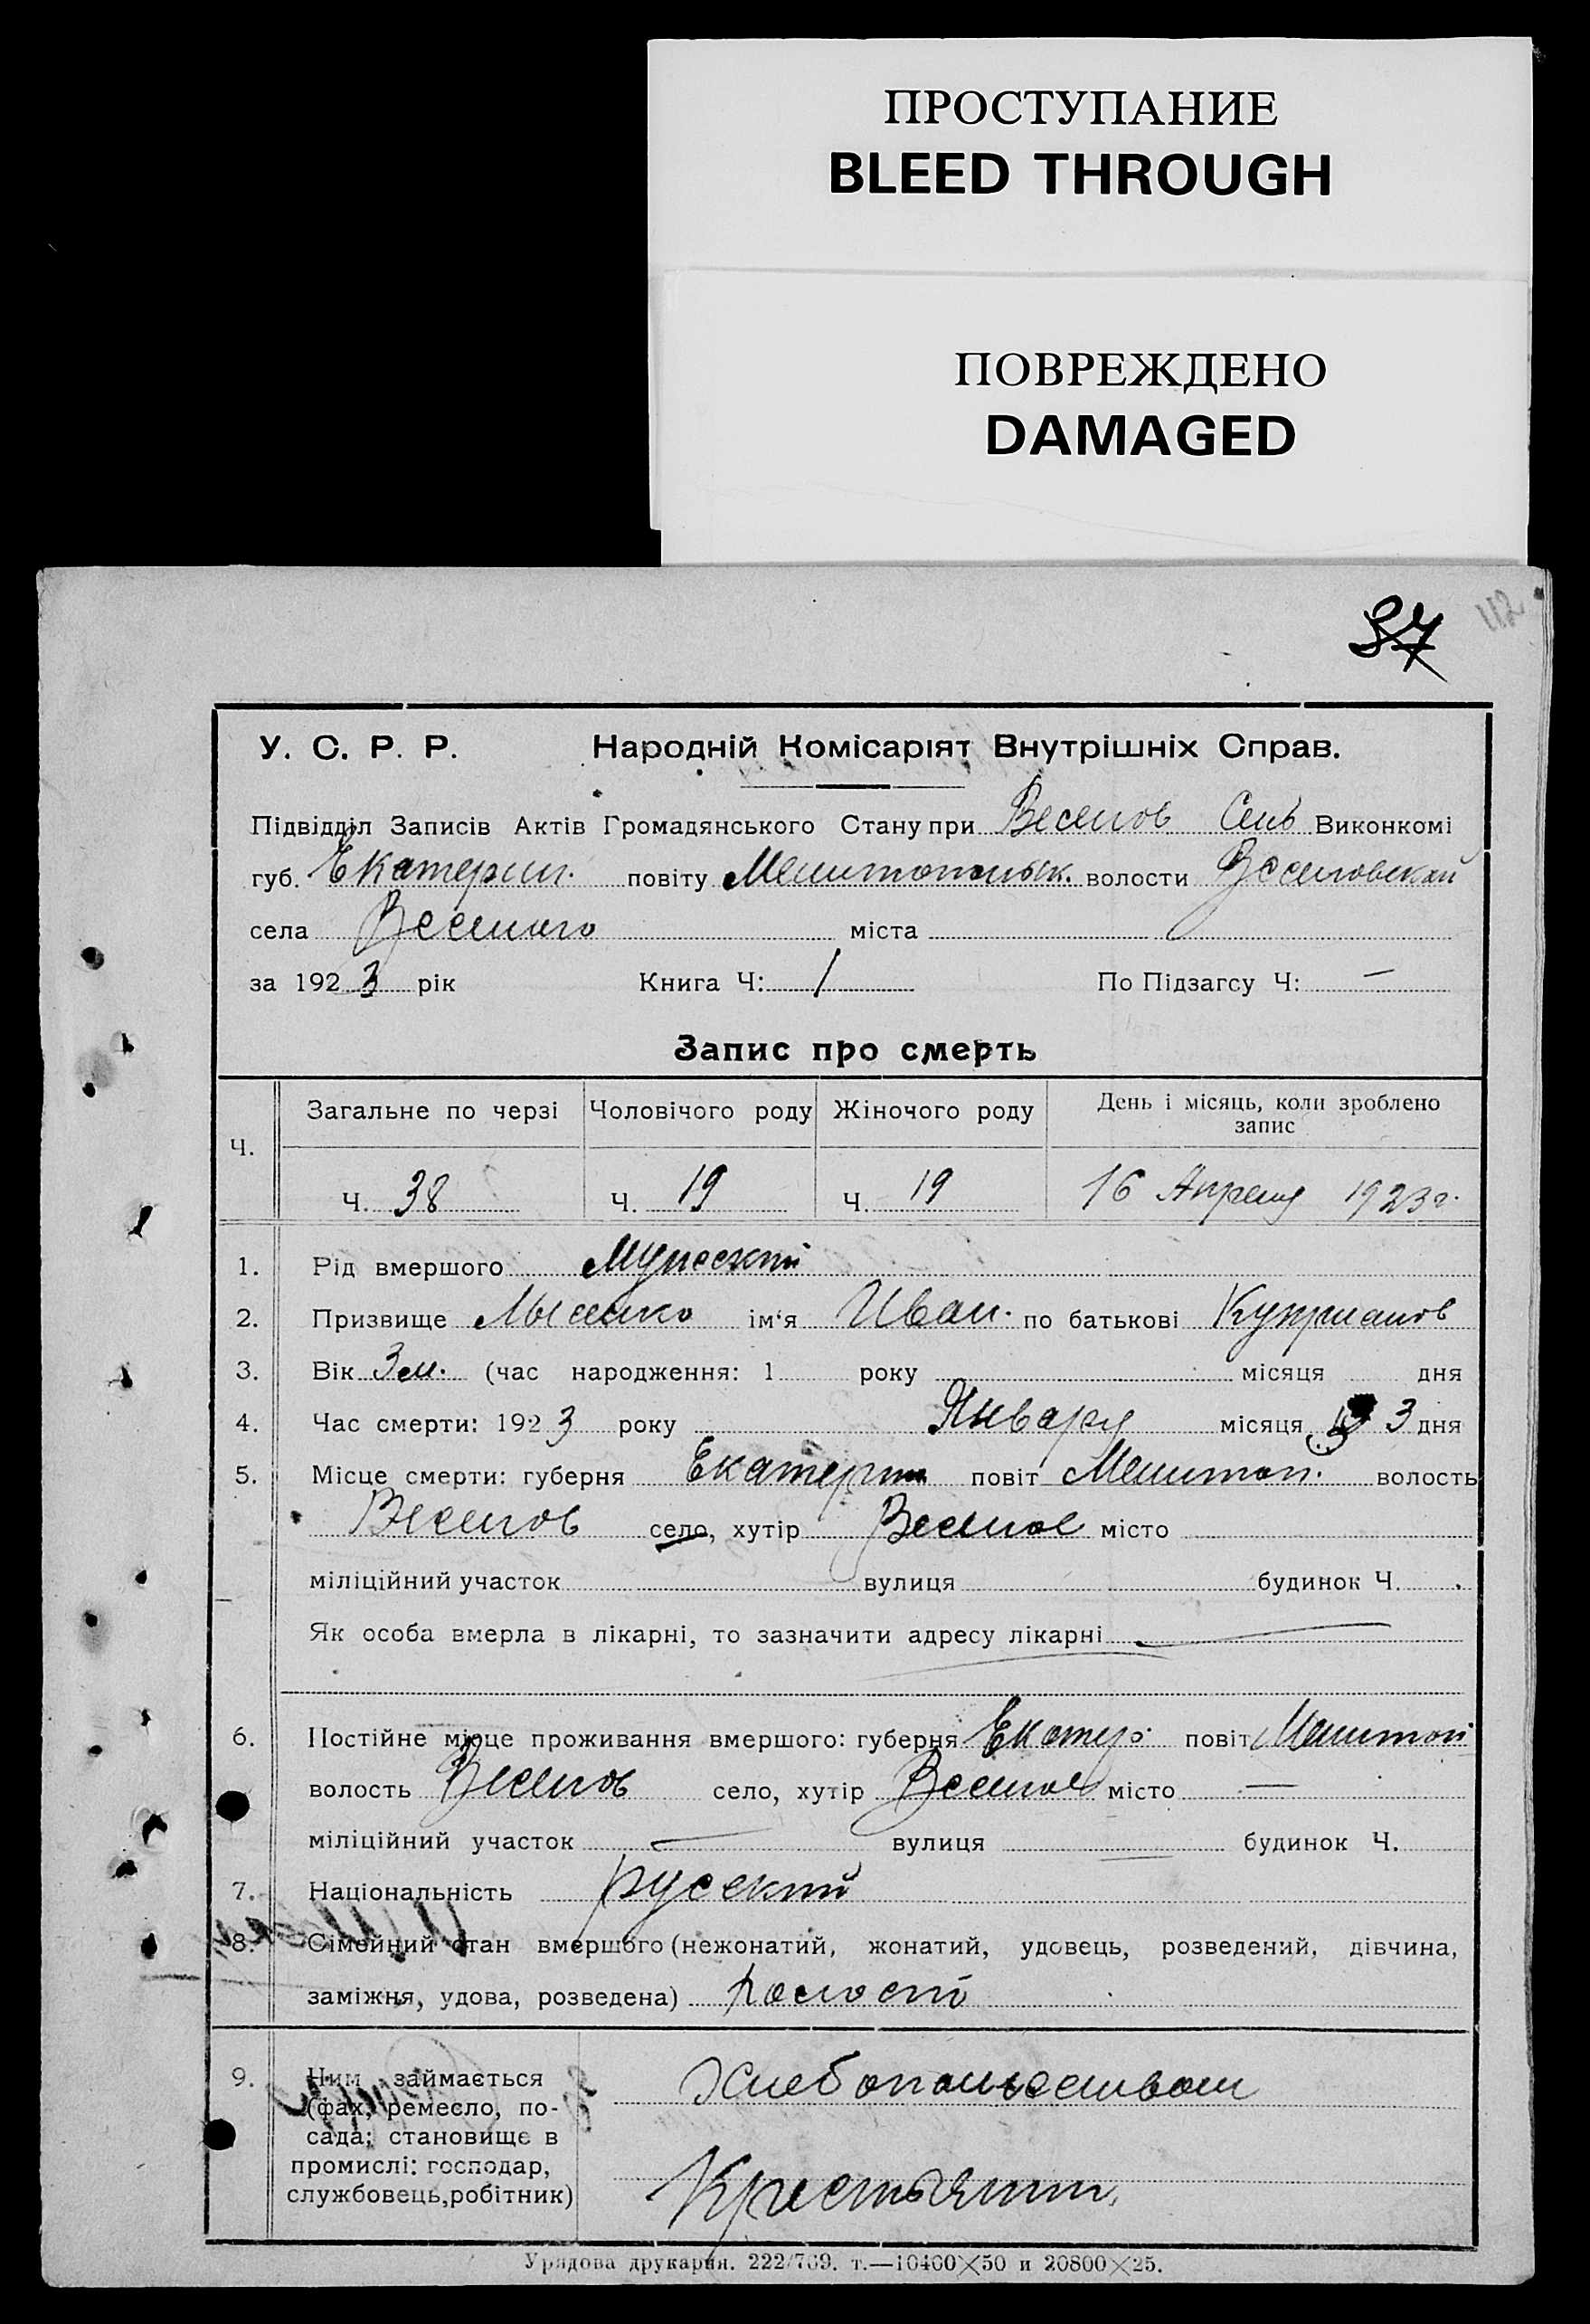 ПРОСТУПАНИЕ
BLEED THROUGH
ПОВРЕЖДЕНО
DAMAGED
37 112
У. С. Р. Р. Народній Комісаріят Внутрішніх Справ.
Підвідділ Записів Актів Громадянського Стану при Веселов Сель Виконкомі
губ. Екатерин. повіту Мелитопольск. волости Веселовской
села Веселого міста
за 1923 рік Книга Ч: 1 По Підзагсу Ч: —
Запис про смерть
Ч. Загальне по черзі Чоловічого роду Жіночого роду День і місяць, коли зроблено запис
Ч. 38 Ч. 19 Ч. 19 16 Апреля 1923 г.
1. Рід вмершого Мужеский
2. Призвище ім'я Иван. по батькові Куприанов
3. Вік 3 м. (час народження: 1 року місяця дня
4. Час смерти: 1923 року Января місяця 3 дня
5. Місце смерти: губерня Екатерин повіт Мелитоп. волость
Веселов село, хутір Веселое місто
міліційний участок вулиця будинок Ч.
Як особа вмерла в лікарні, то зазначити адресу лікарні —
6. Постійне місце проживання вмершого: губерня Екатер. повіт Мелитоп
волость Веселов село, хутір Веселое місто —
міліційний участок — вулиця — будинок Ч.
7. Національність русский
8. Сімейний стан вмершого (нежонатий, жонатий, удовець, розведений, дівчина,
заміжня, удова, розведена) холост
9. Ним займається
(фах, ремесло, по-
сада; становище в
промислі: господар,
службовець, робітник)
Хлебопашеством
Крестьянин
Урядова друкарня. 222/769. т.—10400×50 и 20800×25.